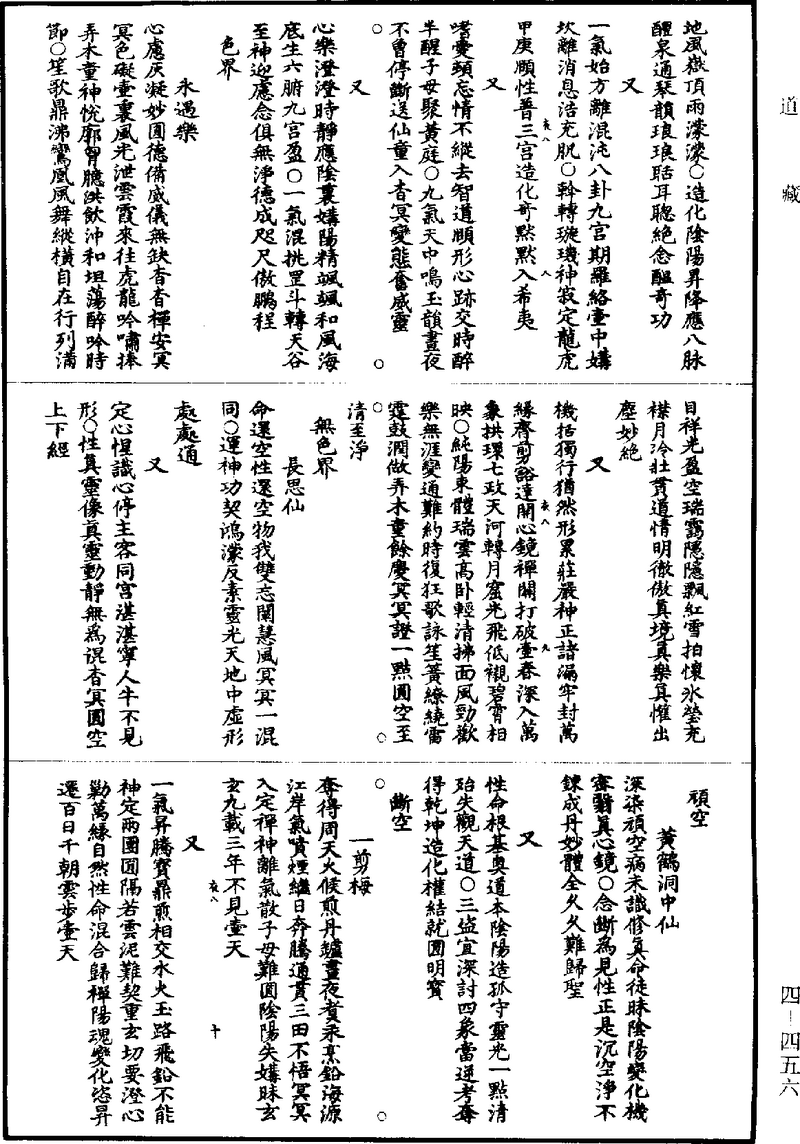 道藏
地風嶽頂雨濛濛○造化陰陽昇降應八脉
醒泉通琹韻琅琅聒耳聰絶念醖奇功
又
一氣始方離混沌八卦九宮期羅絡壷中媾
坎離消息浩充肌○斡轉璇璣神寂定龍虎
甲庚順性普三宮造化奇㸃㸃入希夷
又
嗜愛頻忘情不縱去智道順形心跡交時醉
半醒子母聚黃庭○九氣天中鳴玉韻晝夜
不曾停斷送仙童入杳冥變態奮威靈
又
心樂澄澄時靜應陰裏媾陽精颯颯和風海
底生六腑九宮盈○一氣混挑罡斗轉天谷
至神迎慮念俱無淨德成咫尺傲鵬程
色界
永遇樂
心慮灰凝妙圓德備威儀無缺杳杳禪安冥
冥色礙壷裏風光泄雲霞來往虎龍吟嘯捧
弄木童神悅廓胷臆洪飲沖和坦蕩醉吟時
節○笙歌鼎沸鸞鳳風舞縱橫自在行列滿
目祥光盈空瑞靄隱隱飄紅雪拍懷氷瑩充
襟月冷壯貫道情明徹傲真境真樂真惟出
塵妙絶
又
機括獨行猶然形累莊嚴神正諸漏牢封萬
緣齊剪豁達開心鏡禪關打破壷春深入萬
象拱環七政天河轉月窟光飛低襯碧霄相
映○純陽東體瑞雲高卧輕清拂面風勁歡
樂無涯變通難約時復狂歌詠笙簧繚繞雷
霆鼓濶做弄木童餘慶冥冥證一㸃圓空至
清至淨
無色界
長思仙
命還空性還空物我雙忘闡慧風冥冥一混
同○運神功契鴻濛反素靈光天地中虛形
處處通
又
定心惺識心停主客同宮湛湛寧人牛不見
形○性真靈像真靈動靜無為混杳冥圓空
上下經
頑空
黃鶴洞中仙
深染頑空病未識修真命徒昧陰陽變化機
寧翳真心鏡○念斷為見性正是沉空淨不
錬成丹妙體全久久難歸聖
又
性命根基奧道本陰陽造孤守靈光一㸃清
殆失觀天道○三盜宜深討四象當逆考奪
得乾坤造化權結就圓明寳
斷空
一剪梅
奪得周天火候煎丹鑪晝夜煑汞烹鉛海源
江岸氣噴煙繼日奔騰通貫三田不悟冥冥
入定禪神離氣散子母難圓陰陽失媾昧玄
玄九載三年不見壷天
又
一氣昇騰寳鼎煎相交水火玉路飛鉛不能
神定兩團圓隔若雲泥難契重玄切要澄心
勦萬緣自然性命混合歸禪陽魂變化恣昇
遷百日千朝雲步壷天
四—四五六